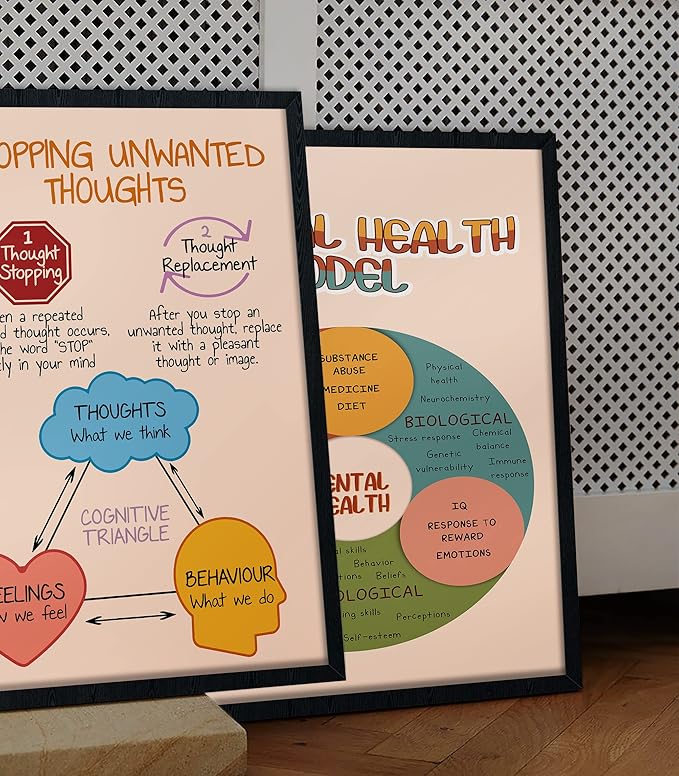 OPPING UNWANTED
THOUGHTS
1
Thought
Stopping
2
Thought
Replacement
en a repeated
d thought occurs,
he word "STOP"
ly in your mind
After you stop an
unwanted thought, replace
it with a pleasant
thought or image.
THOUGHTS
What we think
COGNITIVE
TRIANGLE
EELINGS
w we feel
BEHAVIOUR
What we do
L HEALTH
ODEL
SUBSTANCE
ABUSE
MEDICINE
DIET
Physical
health
Neurochemistry
BIOLOGICAL
Stress response
Chemical
balance
Genetic
vulnerability
Immune
response
ENTAL
EALTH
IQ
RESPONSE TO
REWARD
EMOTIONS
al skills
Behavior
tions Beliefs
OLOGICAL
ing skills Perceptions
Self-esteem